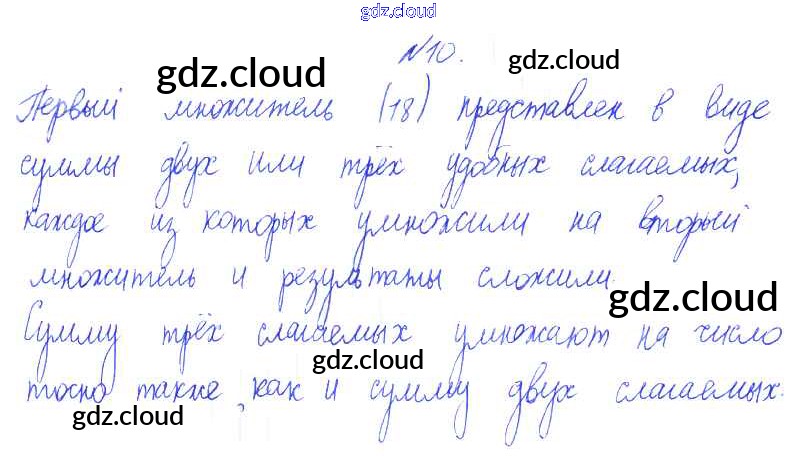 gdz.cloud
№10.
gdz.cloud
gdz.cloud
Первый множитель (18) представлен в виде
суммы двух или трёх удобных слагаемых,
каждое из которых умножили на второй
множитель и результаты сложили.
gdz.cloud
Сумму трёх слагаемых умножают на число
gdz.cloud
точно также, как и сумму двух слагаемых.
gdz.cloud